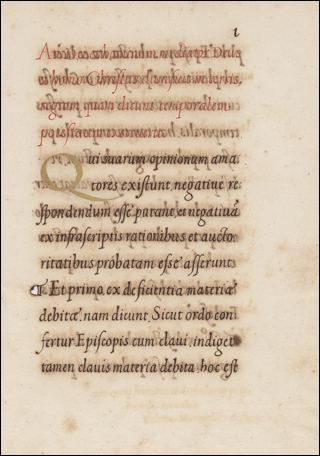 1
Christus
quam dicunt temporalem
Qui suarum opinionum ama
tores existunt, negatiue re
spondendum esse putant, et negatiuã
ex infrascriptis rationibus et aucto
ritatibus probatam esse asserunt
Et primo ex deficientia materiæ
debitæ, nam dicunt, Sicut ordo con
fertur Episcopis cum claui, indiget
tamen clauis materia debita, hoc est